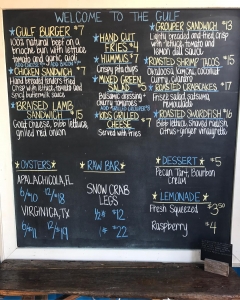 WELCOME TO THE GULF
GULF BURGER $7
100% natural beef on a
brioche bun with lettuce,
tomato and garlic aioli
CHICKEN SANDWICH $7
Hand breaded tenders fried
Crisp with lettuce, tomato and
spicy buttermilk sauce
BRAISED LAMB
SANDWICH $15
Goat cheese, bibb lettuce,
grilled red onion
HAND CUT
FRIES $4
HUMMUS $7
Crispy pita chips
MIXED GREEN
SALAD $5
Balsamic dressing +
cherry tomatoes
KIDS GRILLED
CHEESE $7
Served with fries
GROUPER SANDWICH $13
Lightly breaded and fried crisp
with lettuce, tomato and
lemon dill sauce
ROASTED SHRIMP TACOS $15
ROASTED CRABCAKES $17
ROASTED SWORDFISH $16
OYSTERS
APALACHICOLA, FL
6/$10 12/$18
VIRGINICA, TX
6/$11 12/$19
RAW BAR
SNOW CRAB
LEGS
1/2# $12
1# $22
DESSERT $5
Pecan Tart, Bourbon
Cream
LEMONADE
Fresh Squeezed $3.50
Raspberry $4